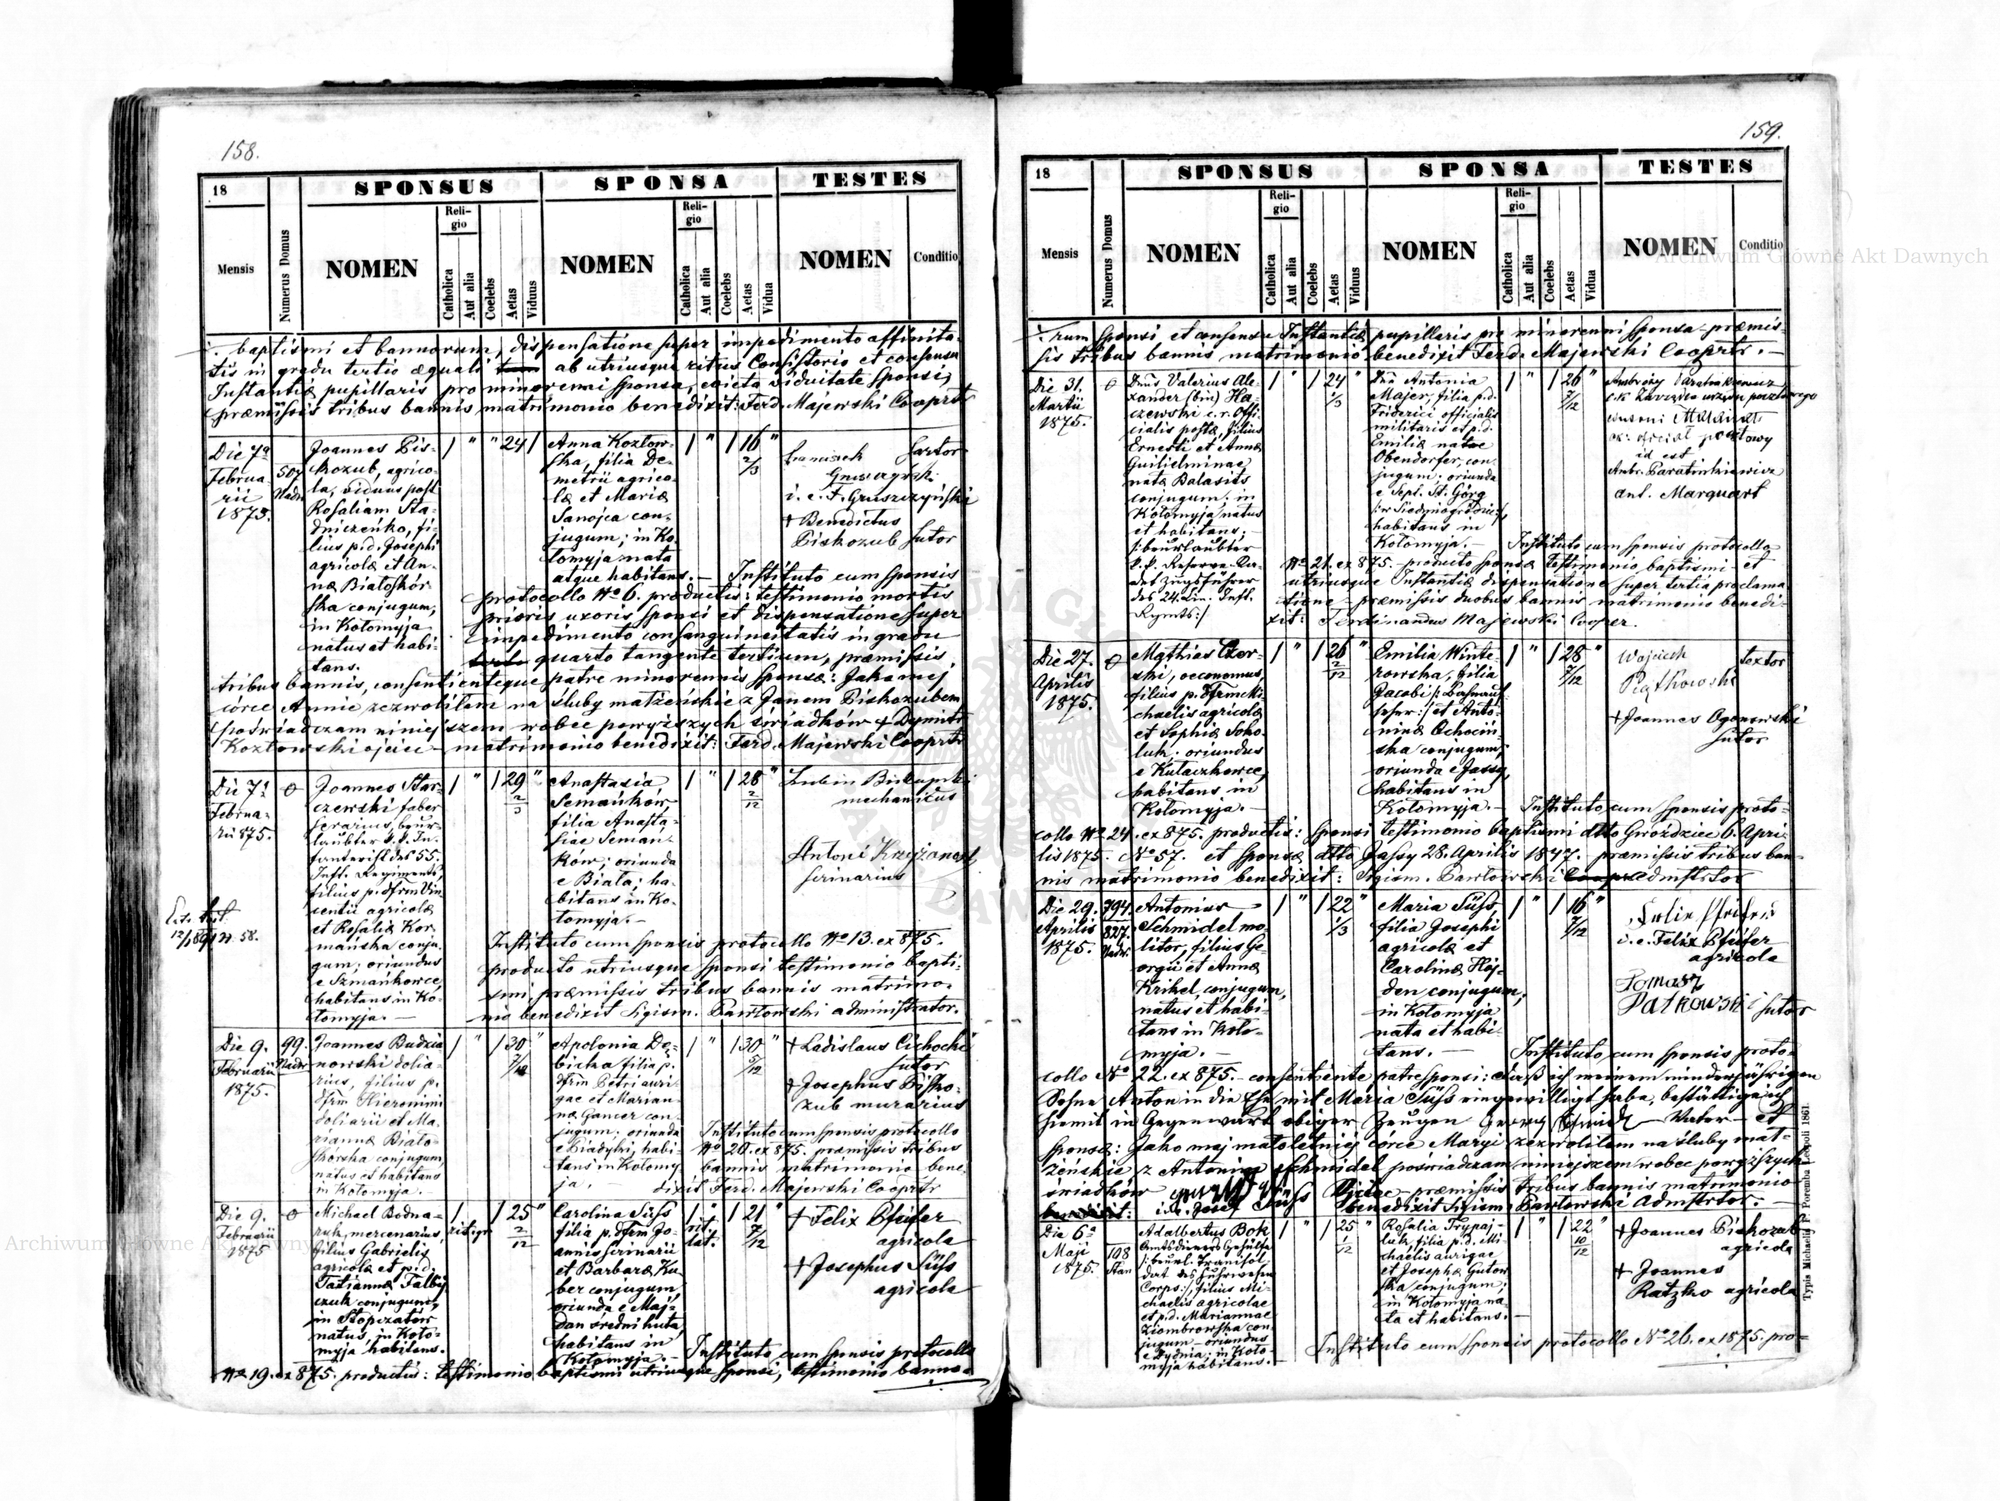 158.
18
SPONSUS
SPONSA
TESTES
Mensis
Numerus Domus
NOMEN
Religio
Catholica
Aut alia
Coelebs
Aetas
Viduus
NOMEN
Religio
Catholica
Aut alia
Coelebs
Aetas
Vidua
NOMEN
Conditio
baptismi et bannorum, dispensatione super impedimento affinita-
tis in gradu tertio æquali ab utriusque ritus Consistoris et consensu
Instantiæ pupillaris pro minorenni sponsa, evicta viduitate sponsi,
præmissis tribus bannis matrimonio benedixit: Ferd. Majewski Cooprtr
Die 7a
Februa-
rii
1875.
507
Nadw
Joannes Pis-
kozub, agrico-
la, viduus post
Rosaliam Sta-
dniczeńko, fi-
lius p.d. Josephi
agricolæ et An-
næ Białoskór-
ska conjugum,
in Kołomyja
natus et habi-
tans.
1 " " 24 1
Anna Kozłow-
ska, filia De-
metrii agrico-
læ et Mariæ
Sanojca con-
jugum; in Ko-
łomyja nata
atque habitans. —
1 " 1 16
2/3
Sartor
i. e. F. Gruszczyński
+ Benedictus
Piskozub sutor
Instituto cum sponsis
protocollo No 6. productis: testimonio mortis
prioris uxoris sponsi et dispensatione super
impedimento consanguineitatis in gradu
quarto tangente tertium, præmissis
tribus bannis, consentienteque patre minorennis sponsæ: Jako mej
córce Annie zezwoliłem na śluby małżeńskie z Janem Piskozubem
poświadczam niniejszem wobec powyższych świadków + Dymitr
Kozłowski ojciec — matrimonio benedixit: Ferd. Majewski Cooprtr
Die 7a
Februa-
rii 875.
0
Joannes Star-
czewski faber
ferarius, beur-
laubter k.k. In-
fanterist des 55.
Inft. Regiments,
filius p. dfrm Vin-
centii agricolæ
et Rosaliæ Kor-
mańska conju-
gum; oriundus
e Szmańkowce,
habitans in Ko-
łomyja. —
1 " 1 29 "
2/3
Anastasia
Semańków
filia Anasta-
siæ Semań-
ków; oriunda
e Biała; ha-
bitans in Ko-
łomyja. —
1 " 1 28 "
2/12
mechanicus
Antoni
serinarius
12/1 891 N. 58.
Instituto cum sponsis protocollo No 13. ex 875.
producto utriusque sponsi testimonio bapti-
smi, præmissis tribus bannis matrimo-
nio benedixit Sigism. Pawłowski administrator.
Die 9.
Februarii
1875.
99.
Nadw
Joannes Budzia-
nowski dolia-
rius, filius p.
dfrm Hieronimi
doliarii et Ma-
riannæ Biało-
skórska conjugum,
natus et habitans
in Kołomyja. —
1 " 1 30 "
7/12
Apolonia De-
bicka filia p.
dfrm Petri auri-
gae et Marian-
næ Gancer con-
jugum; oriunda
e Piadyki, habi-
tans in Kołomy-
ja. —
1 " 1 30 "
5/12
+ Ladislaus Cichocki
sutor
+ Josephus Pisko-
zub murarius
Instituto cum sponsis protocollo
No 20. ex 875. præmissis tribus
bannis matrimonio bene-
dixit Ferd. Majewski Cooprtr
Die 9.
Februarii
1875
0
Michael Bodna-
ruk, mercenarius,
filius Gabrielis
agricolæ et p.d.
Tatiannæ Falbij-
czuk conjugum,
in Stopczatów
natus, in Koło-
myja habitans.
1 1 25 "
rit. gr. 2/12
Carolina Süss
filia p. dfrm Jo-
annis serinarii
et Barbaræ Ku-
ber conjugum,
oriunda e Maj-
dan średni huta,
habitans in
Kołomyja. —
1 " 1 21 "
rit. lat. 7/12
+ Felix Pfeifer
agricola
+ Josephus Süss
agricola
Instituto cum sponsis protocollo
No 19. ex 875. productis: testimonio baptismi utriusque sponsi, testimonio banno-
159.
18
SPONSUS
SPONSA
TESTES
Mensis
Numerus Domus
NOMEN
Religio
Catholica
Aut alia
Coelebs
Aetas
Viduus
NOMEN
Religio
Catholica
Aut alia
Coelebs
Aetas
Vidua
NOMEN
Conditio
rum sponsi et consensu Instantiæ pupillaris pro minorenni sponsa præmis-
sis tribus bannis matrimonio benedixit Ferd. Majewski Cooprtr. —
Die 31.
Martii
1875.
0
Dnus Valerius Ale-
xander (bin) Ha-
czewski c.r. offi-
cialis postæ, filius
Ernesti et Annæ
Guilielminae
natæ Balasits
conjugum; in
Kołomyja natus
et habitans; —
/: beurlaubter
k.k. Reserve Ka-
det Zugsführer
des 24. Lin. Inft.
Rgmts :/
1 " 1 24 "
2/3
Dna Antonia
Majer, filia p.d.
Friderici officialis
militaris et p.d.
Emiliæ natae
Obendorfer, con-
jugum; oriunda
e Sept. St. Görg
habitans in
Kołomyja. —
1 " 1 26 "
7/12
id est
Ambr. Baratinkiewicz
ant. Marquart
Instituto cum sponsis protocollo
No 21. ex 875. producto sponsæ testimonio baptismi et
utriusque Instantiæ dispensatione super tertia proclama-
tione — præmissis duobus bannis matrimonio benedi-
xit: Ferdinandus Majewski Cooper.
Die 27.
Aprilis
1875.
0
Mathias Czor-
ski, oeconomus,
filius p. dfrm Mi-
chaelis agricolæ
et Sophiæ Soho-
luk; oriundus
e Kułaczkowce,
habitans in
Kołomyja. —
1 " 1 26 "
2/12
Emilia Winte-
rowska, filia
Jacobi
et Anto-
ninæ Ochocin-
ska conjugum;
oriunda e Jassy,
habitans in
Kołomyja. —
1 " 1 28 "
7/12
Wojciech textor
Piątkowski
+ Joannes Ogonowski
sutor
Instituto cum sponsis proto-
collo No 24. ex 875. productis: sponsi testimonio baptismi dtto Gwoździec 6. Apri-
lis 1875. No 57. et sponsæ dtto Jassy 28. Aprilis 1847. præmissis tribus ban-
nis matrimonio benedixit: Sigism. Pawłowski Admstrtor
Die 29.
Aprilis
1875.
794.
827.
Nadw.
Antonius
Schmidel mo-
litor, filius Ge-
orgii et Annæ
Krikel, conjugum,
natus et habi-
tans in Koło-
myja. —
1 " 1 22 "
1/3
Maria Süss
filia Josephi
agricolæ et
Carolinæ Höj-
den conjugum,
in Kołomyja
nata et habi-
tans. —
1 " 1 16 "
7/12
i. e. Felix Pfeifer
agricola
Tomasz
Patkowski sutor
Instituto cum sponsis proto-
collo No 22. ex 875. — consentiente patre sponsi: Daß ich meinem minderjährigen
Sohne Anton in die Ehe mit Maria Süss eingewilligt habe, bestättige ich
hiemit in Gegenwart obiger Zeugen Georg Vater — et
sponsæ: Jako mej małoletniej córce Maryi zezwoliłem na śluby mał-
żeńskie z Antonim Schmidel poświadczam niniejszem wobec powyższych
świadków i.e. Josef Süss Ojciec — præmissis tribus bannis matrimonio
benedixit Sigism. Pawłowski Admstrtor. —
Die 6a
Maji
1875.
108
Stan
Adalbertus Bok
Amtsdieners Gehülfe
det des Fuhrwesen
Corps :/, filius Mi-
chaelis agricolae
et p.d. Mariannae
Ziombrowska con-
jugum — oriundus
e Dydnia; in Koło-
myja habitans. —
1 " 1 25 "
1/12
Rosalia Trypaj-
luk filia p.d. Mi-
chaelis aurigae
et Josephæ Gutow-
ska conjugum;
in Kołomyja na-
ta et habitans. —
1 " 1 22 "
10/12
+ Joannes Piskozub
agricola
+ Joannes
Ratzko agricola
Instituto cum sponsis protocollo No 26. ex 1875. pro-
Typis Michaelis F. Poremba Leopoli 1861.
Archiwum Główne Akt Dawnych
Archiwum Główne Akt Dawnych